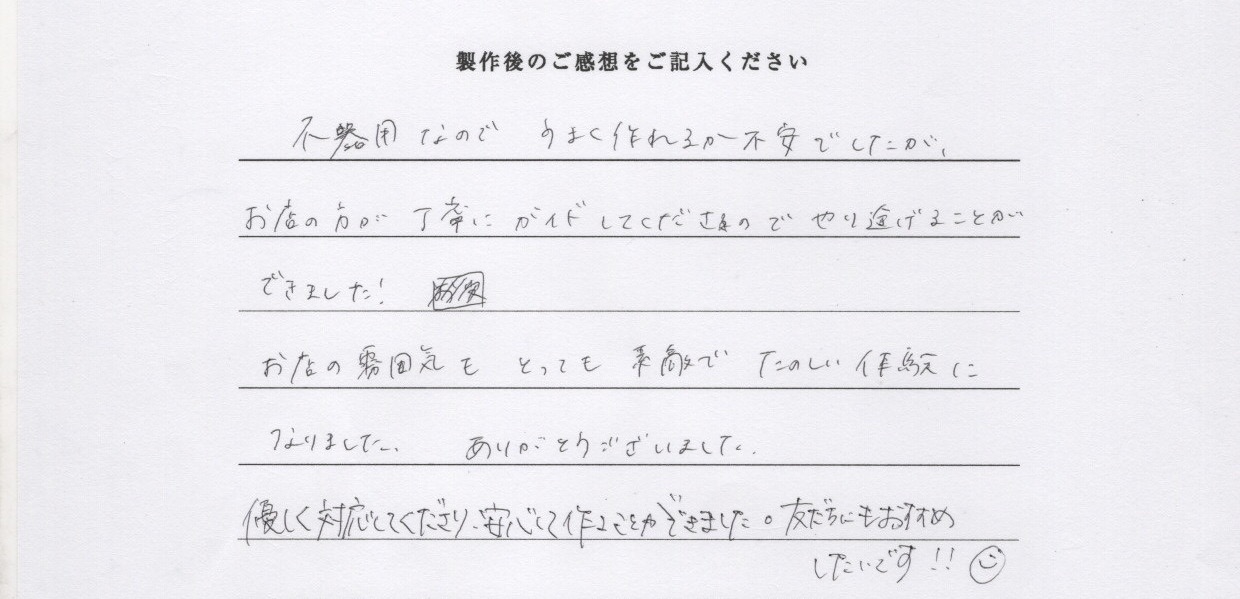 製作後のご感想をご記入ください
不器用なので うまく作れるか不安でしたが、
お店の方が 丁寧に ガイドしてくださるので やり遂げることが
できました!
お店の雰囲気も とっても 素敵で たのしい体験に
なりました。 ありがとうございました。
優しく対応してくださり、安心して作ることができました。友だちにもおすすめ
したいです!!